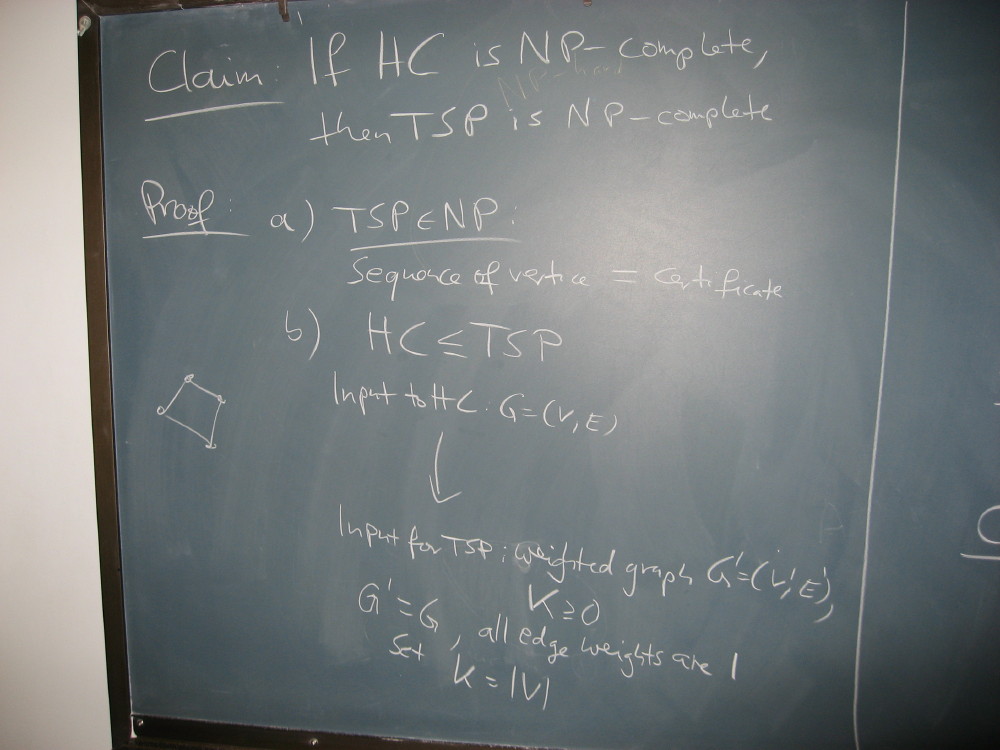 Claim: If HC is NP-complete,
NP-hard
then TSP is NP-complete
Proof: a) TSP∈NP:
Sequence of vertice = certificate
b) HC≤TSP
Input to HC: G=(V,E)
Input for TSP: weighted graph G'=(V',E'),
K≥0
G'=G, all edge weights are 1
Set K=|V|